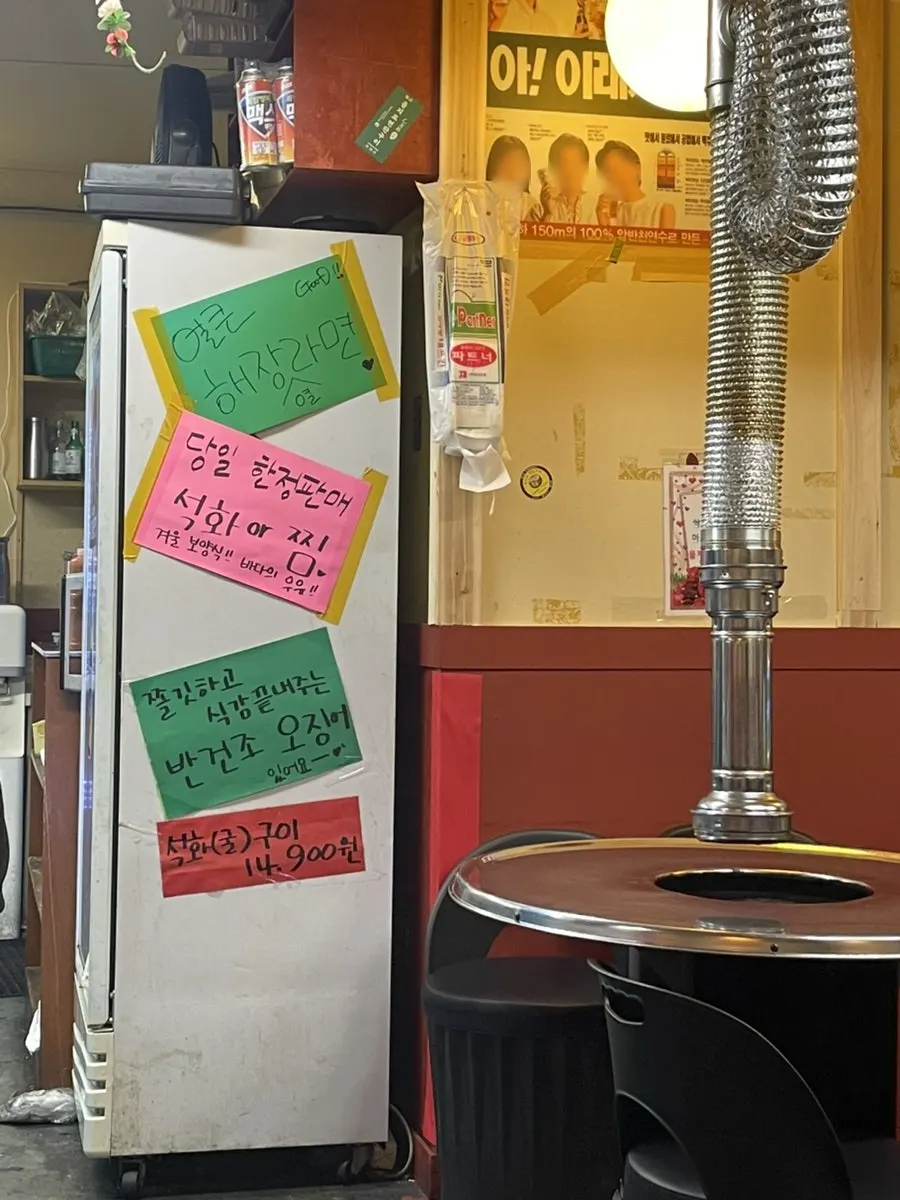 아! 이래
맥스
하 150m의 100% 암반천연수로 만든
Partner
파트너
Good!!
얼큰
해장라면
당일 한정판매
석화 or 찜
겨울 보양식!! 바다의 우유!!
쫄깃하고
식감끝내주는
반건조 오징어
있어요~
석화(굴)구이
14,900원